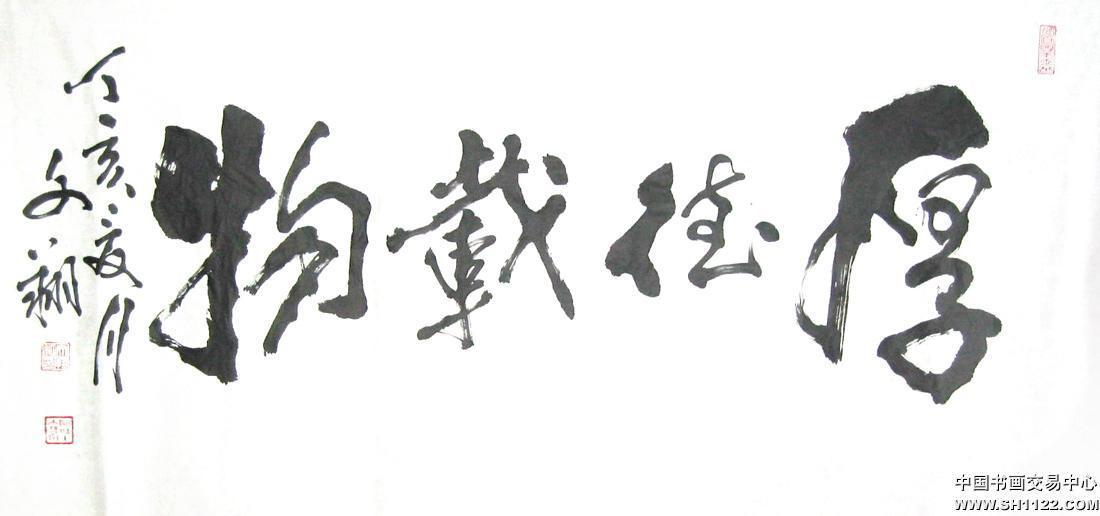 厚德載物
丁亥夏月
文翔
中国书画交易中心
WWW.SH1122.COM